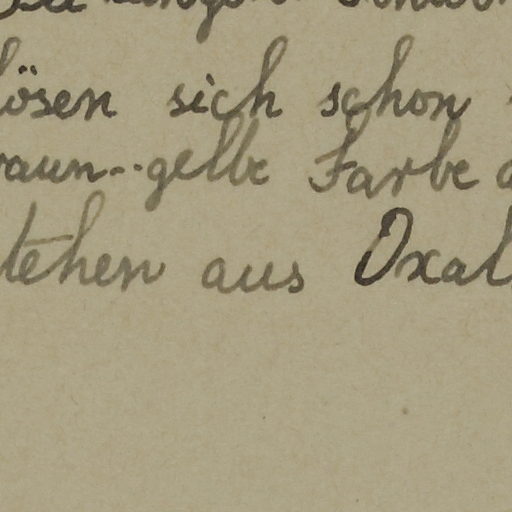 lösen sich schon
raun-gelbe Farbe
tehen aus Oxal